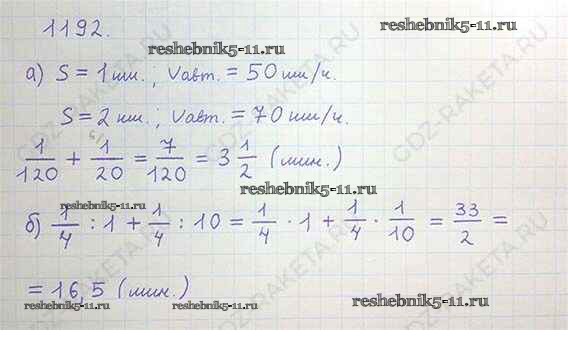 1192.
reshebnik5-11.ru
а) S = 1 км. ; Vавт. = 50 км/ч.
S = 2 км. ; Vавт. = 70 км/ч.
6/
1/120 + 1/20 = 7/120 = 3 1/2 (мин.)
reshebnik5-11.ru
reshebnik5-11.ru
б) 1/4 : 1 + 1/4 : 10 = 1/4 · 1 + 1/4 · 1/10 = 33/2 =
= 16,5 (мин.)
reshebnik5-11.ru
reshebnik5-11.ru
reshebnik5-11.ru
GDZ-RAKETA.RU
GDZ-RAKETA.RU
GDZ-RAKETA.RU
GDZ-RAKETA.RU